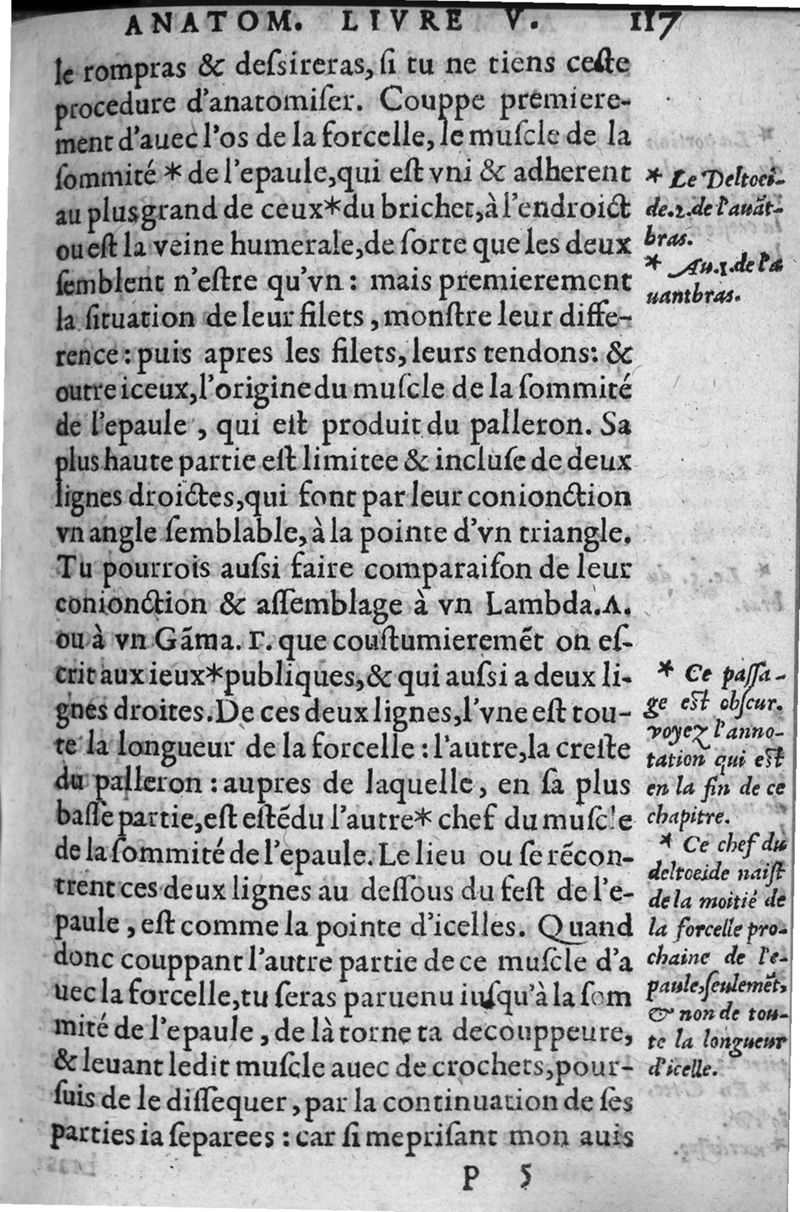 ANATOM. LIVRE V. 117
le rompras & deſsireras, ſi tu ne tiens ceſte
procedure d'anatomiſer. Couppe premiere-
ment d'auec l'os de la forcelle, le muſcle de la
ſommité * de l'epaule, qui eſt vni & adherent
au plus grand de ceux * du brichet, à l'endroict
ou eſt la veine humerale, de ſorte que les deux
ſemblent n'eſtre qu'vn : mais premierement
la ſituation de leur filets, monſtre leur diffe-
rence : puis apres les filets, leurs tendons: &
outre iceux, l'origine du muſcle de la ſommité
de l'epaule, qui eſt produit du palleron. Sa
plus haute partie eſt limitee & incluſe de deux
lignes droictes, qui font par leur conionction
vn angle ſemblable, à la pointe d'vn triangle.
Tu pourrois auſsi faire comparaiſon de leur
conionction & aſſemblage à vn Lambda. Λ.
ou à vn Gãma. Γ. que couſtumieremẽt on eſ-
crit aux ieux * publiques, & qui auſsi a deux li-
gnes droites. De ces deux lignes, l'vne eſt tou-
te la longueur de la forcelle : l'autre, la creſte
du palleron : aupres de laquelle, en ſa plus
baſſe partie, eſt eſtédu l'autre * chef du muſcle
de la ſommité de l'epaule. Le lieu ou ſe récon-
trent ces deux lignes au deſſous du feſt de l'e-
paule, eſt comme la pointe d'icelles. Quand
donc couppant l'autre partie de ce muſcle d'a
uec la forcelle, tu ſeras paruenu iuſqu'à la ſom
mité de l'epaule, de là torne ta decouppeure,
& leuant ledit muſcle auec de crochets, pour-
ſuis de le diſſequer, par la continuation de ſes
parties ia ſeparees : car ſi meprisant mon auis
P 5
* Le Deltoei-
de. 2. de l'auãt-
bras.
* Au. 1. de l'a
uantbras.
* Ce paſſa-
ge eſt obſcur.
voyez l'anno-
tation qui eſt
en la fin de ce
chapitre.
* Ce chef du
deltoeide naiſt
de la moitié de
la forcelle pro-
chaine de l'e-
paule, ſeulemẽt,
& non de tou-
te la longueur
d'icelle.